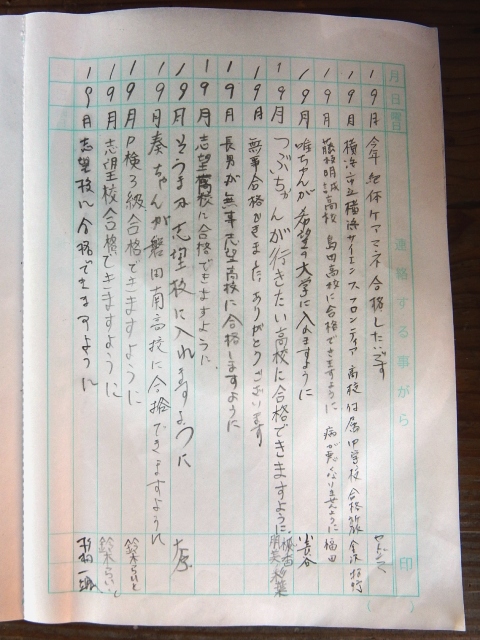 月 日 曜日 連絡する事がら 印
1 9 月 今年絶体ケアマネ合格したいです
1 9 月 横浜市立横浜サイエンスフロンティア高校付属中学校合格祈
1 9 月 藤枝明誠高校 島田高校に合格できますように 病が悪くなりませんように 福田
1 9 月 唯ちゃんが希望の大学に入れますように
1 9 月 つぶちゃんが行きたい高校に合格できますように
1 9 月 無事合格できました。ありがとうございます
1 9 月 長男が無事志望高校に合格しますように
1 9 月 志望校に合格できますように。
1 9 月 そうまが志望校に入れますように
1 9 月 奏ちゃんが磐田南高校に合格できますように
1 9 月 P検3級合格できますように 鈴木らいと
1 9 月 志望校合格できますように 鈴木らいと
1 9 月 志望校に合格できますように